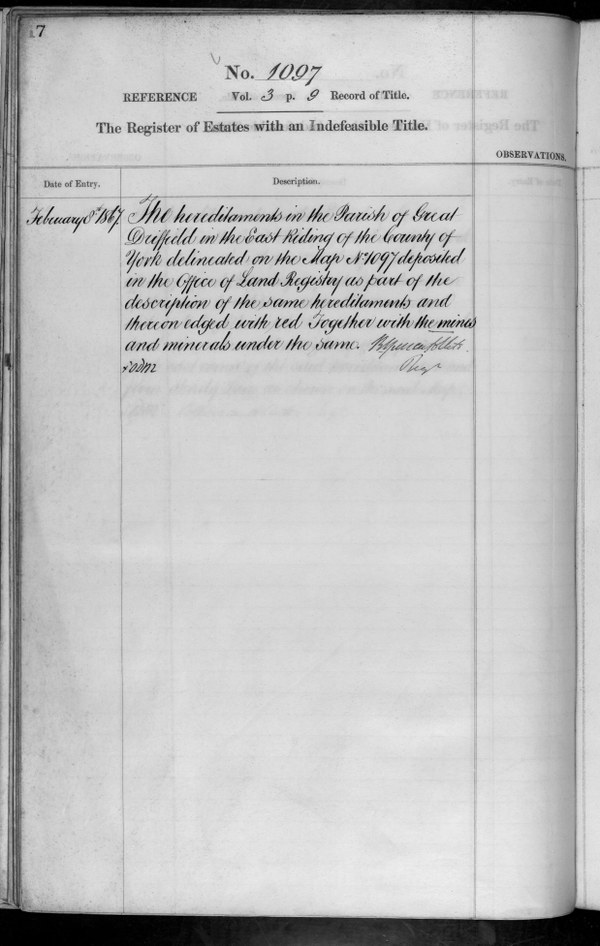 7
No. 1097
REFERENCE Vol. 3 p. 9 Record of Title.
The Register of Estates with an Indefeasible Title.
OBSERVATIONS.
Date of Entry.
Description.
February 8th 1867.
The hereditaments in the Parish of Great
Driffield in the East Riding of the County of
York delineated on the Map No 1097 deposited
in the Office of Land Registry as part of the
description of the same hereditaments and
thereon edged with red Together with the mines
and minerals under the same.
Regr